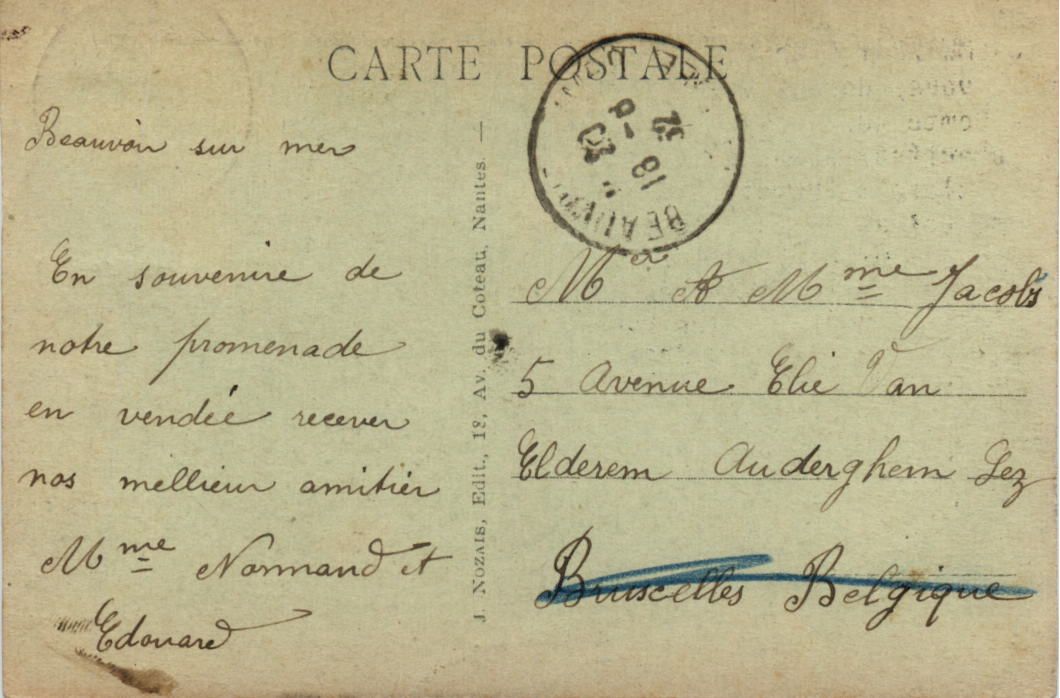 CARTE POSTALE
Beauvoir sur mer
En souvenire de
notre promenade
en vendée recever
nos mellieur amitier
Mme Normand et
Edouard
J. NOZAIS, Edit., 12, Av. du Coteau, Nantes. —
BEAUVOI
18 -8
32
Mr et Mme Jacobs
5 Avenue Elie Van
Elderem Auderghem Lez
Bruscelles Belgique